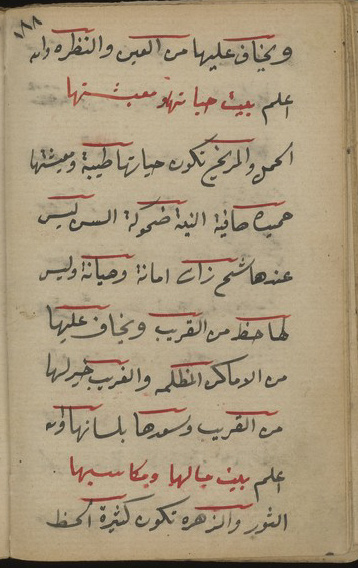 ١٨٨
ويخاف عليها من العين والنظره والله
اعلم بيت حياتها ومعيشتها
الحمل والمريخ تكون حياتها طيبة ومعيشتها
حميده صافية النية ضحوكة السن ليس
عندها شح ذات امانة وصيانة وليس
لها حظ من القريب ويخاف عليها
من الاماكن المظلمه والغريب خير لها
من القريب وسعدها بلسانها والله
اعلم بيت مالها ومكاسبها
الثور والزهره تكون كثيرة الحظ